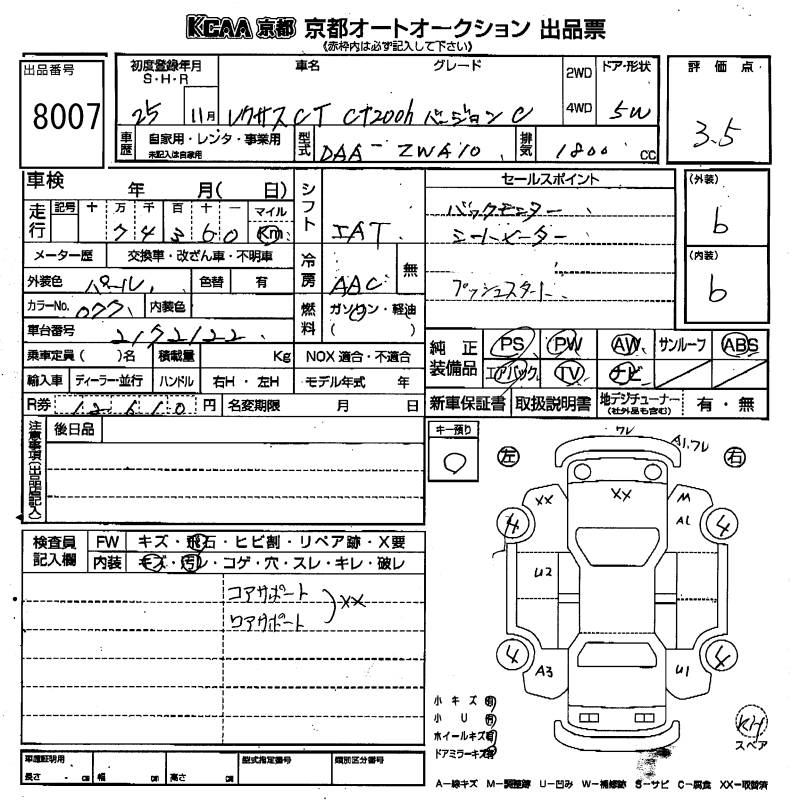 KCAA 京都 京都オートオークション 出品票
《赤枠内は必ず記入して下さい》
出品番号
8007
初度登録年月
S・H・R
25 11月
車名
グレード
レクサスCT CT200h バージョン C
2WD
4WD
ドア・形状
5W
評価点
3.5
車歴
自家用・レンタ・事業用
未記入は自家用
型式
DAA-ZWA10
排気
1800 CC
車検
年 月( 日)
走行
記号 十 万 千 百 十 一 マイル
74360 Km
メーター歴 交換車・改ざん車・不明車
外装色 パール 色替 有
カラーNo. 077 内装色
車台番号 2172122
乗車定員( )名 積載量 Kg NOX 適合・不適合
輸入車 ディーラー・並行 ハンドル 右H・左H モデル年式 年
R券 12610 円 名変期限 月 日
シフト IAT
冷房 AAC 無
燃料 ガソリン・軽油
( )
セールスポイント
バックモニター
シートヒーター
プッシュスタート
(外装)
b
(内装)
b
純正装備品
PS PW AW サンルーフ ABS
エアバック TV ナビ
新車保証書 取扱説明書 地デジチューナー
(社外品も含む) 有・無
注意事項(出品店記入)
後日品
キー預り
0
左
右
ワレ
A1.ワレ
XX
XX
M
A1
4
4
U2
4
4
A3
U1
検査員記入欄
FW キズ・飛石・ヒビ割・リペア跡・X要
内装 キズ・汚レ・コゲ・穴・スレ・キレ・破レ
コアサポート
ロアサポート
XX
小キズ有
小U有
ホイールキズ有
ドアミラーキズ有
KH
スペア
車庫証明用
長さ cm 幅 cm 高さ cm
型式指定番号
類別区分番号
A-線キズ M-調整跡 U-凹み W-補修跡 S-サビ C-腐食 XX-取替済